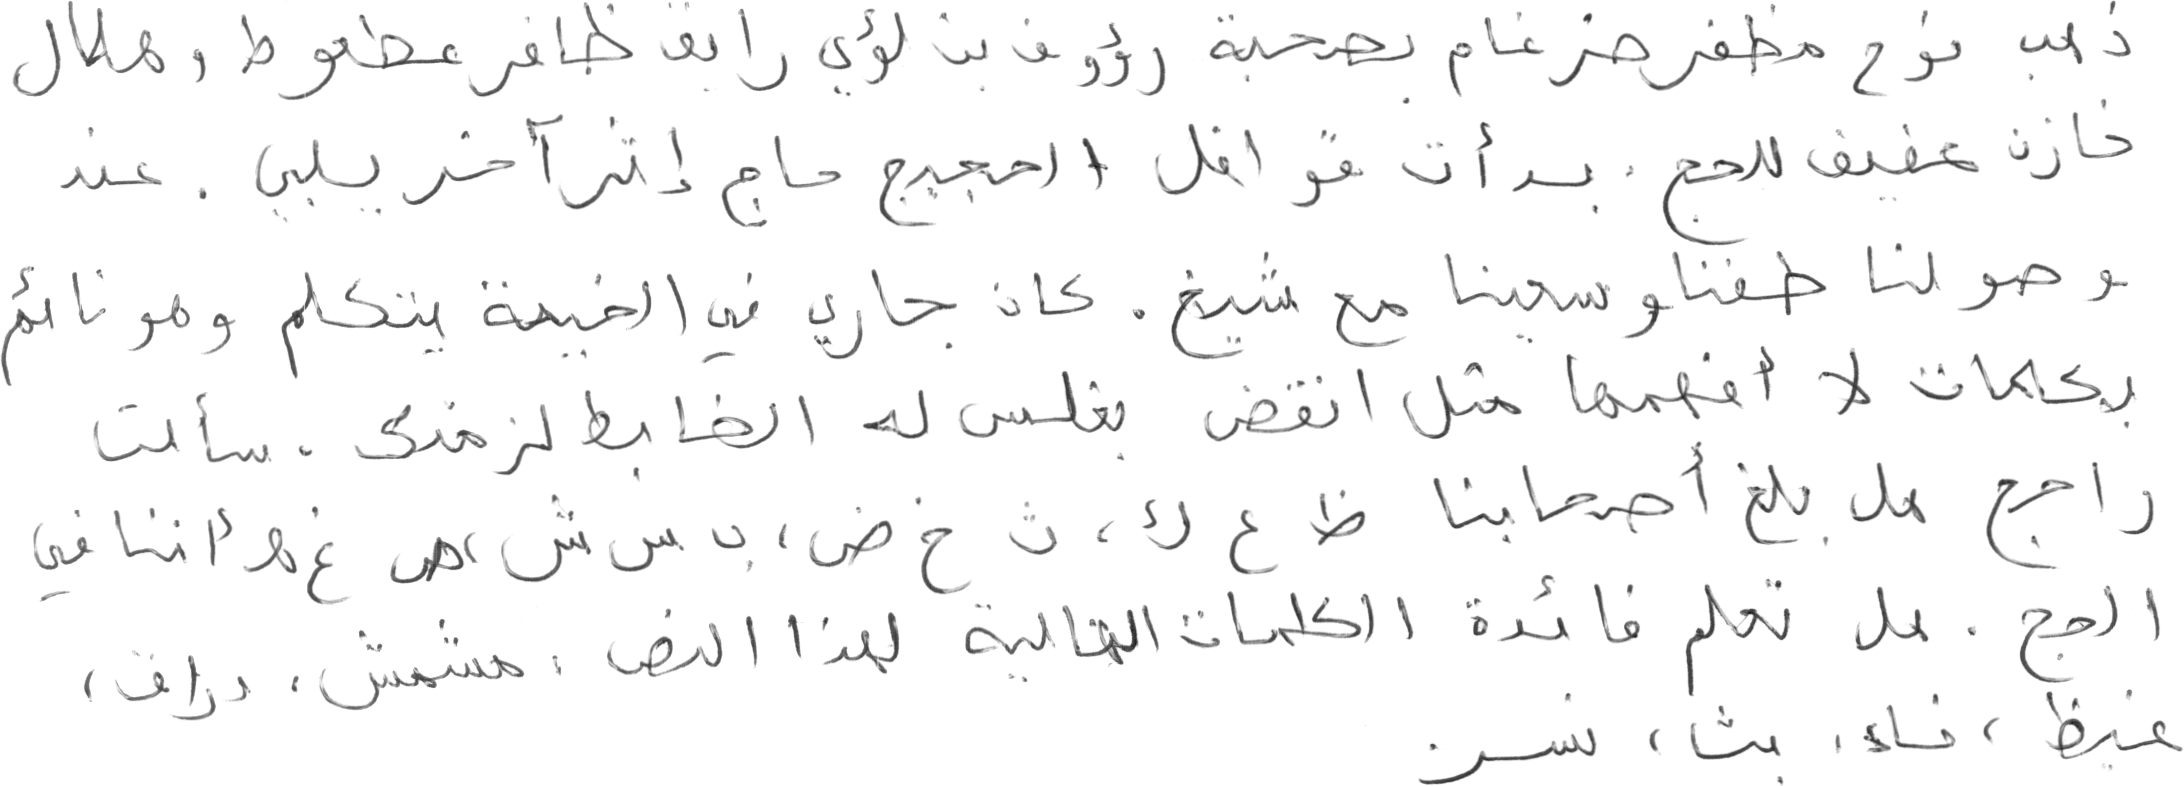 ذهب نوح مظفر ضرغام بصحبة رؤوف بن لؤي رايق ظافر عطعوط و هلال
خازن عفيف للحج . بدأت قوافل الحجيج حاج إثر آخر يلبي . عند
وصولنا طفنا وسعينا مع شيخ . كان جاري في الخيمة يتكلم وهو نائم
بكلمات لا أفهمها مثل انقض بغلس له الضابط لزمتك . سألت
راجح هل بلغ أصحابنا ظ ع ك ، ث خ ض ، ب س ش ، ص غ هـ أننا في
الحج . هل تعلم فائدة الكلمات التالية لهذا النص : مشمش ، دراق ،
غيظ ، فاء ، بث ، نسر .